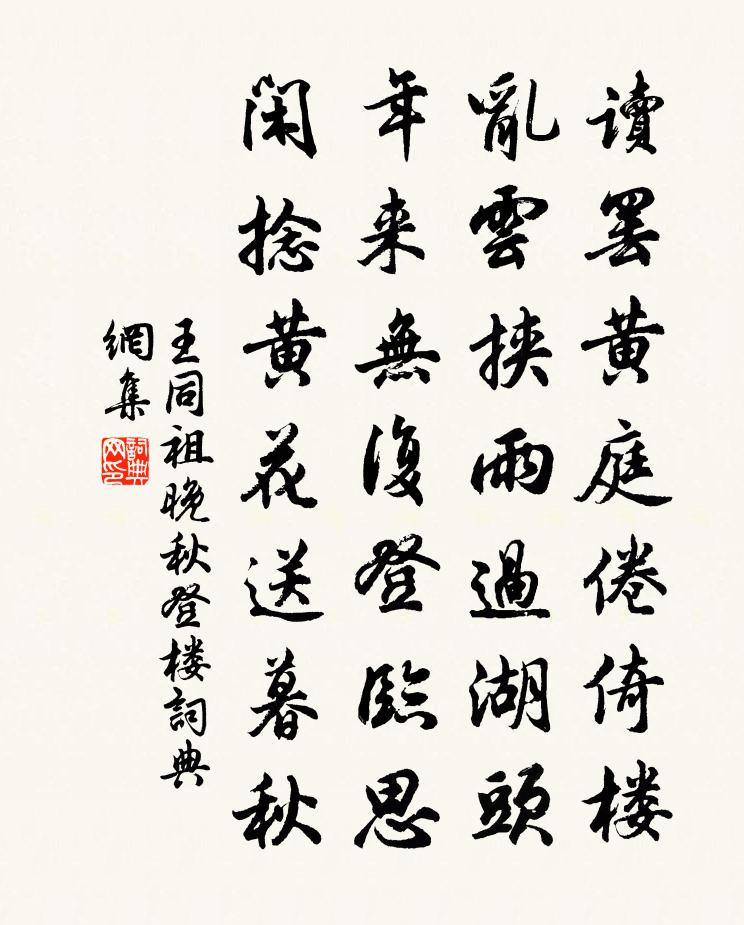 讀罷黃庭倦倚楼
亂雲挾雨過湖頭
年来無復登臨思
閑捻黃花送暮秋
王同祖晚秋登楼詞典
網集
詞典網印